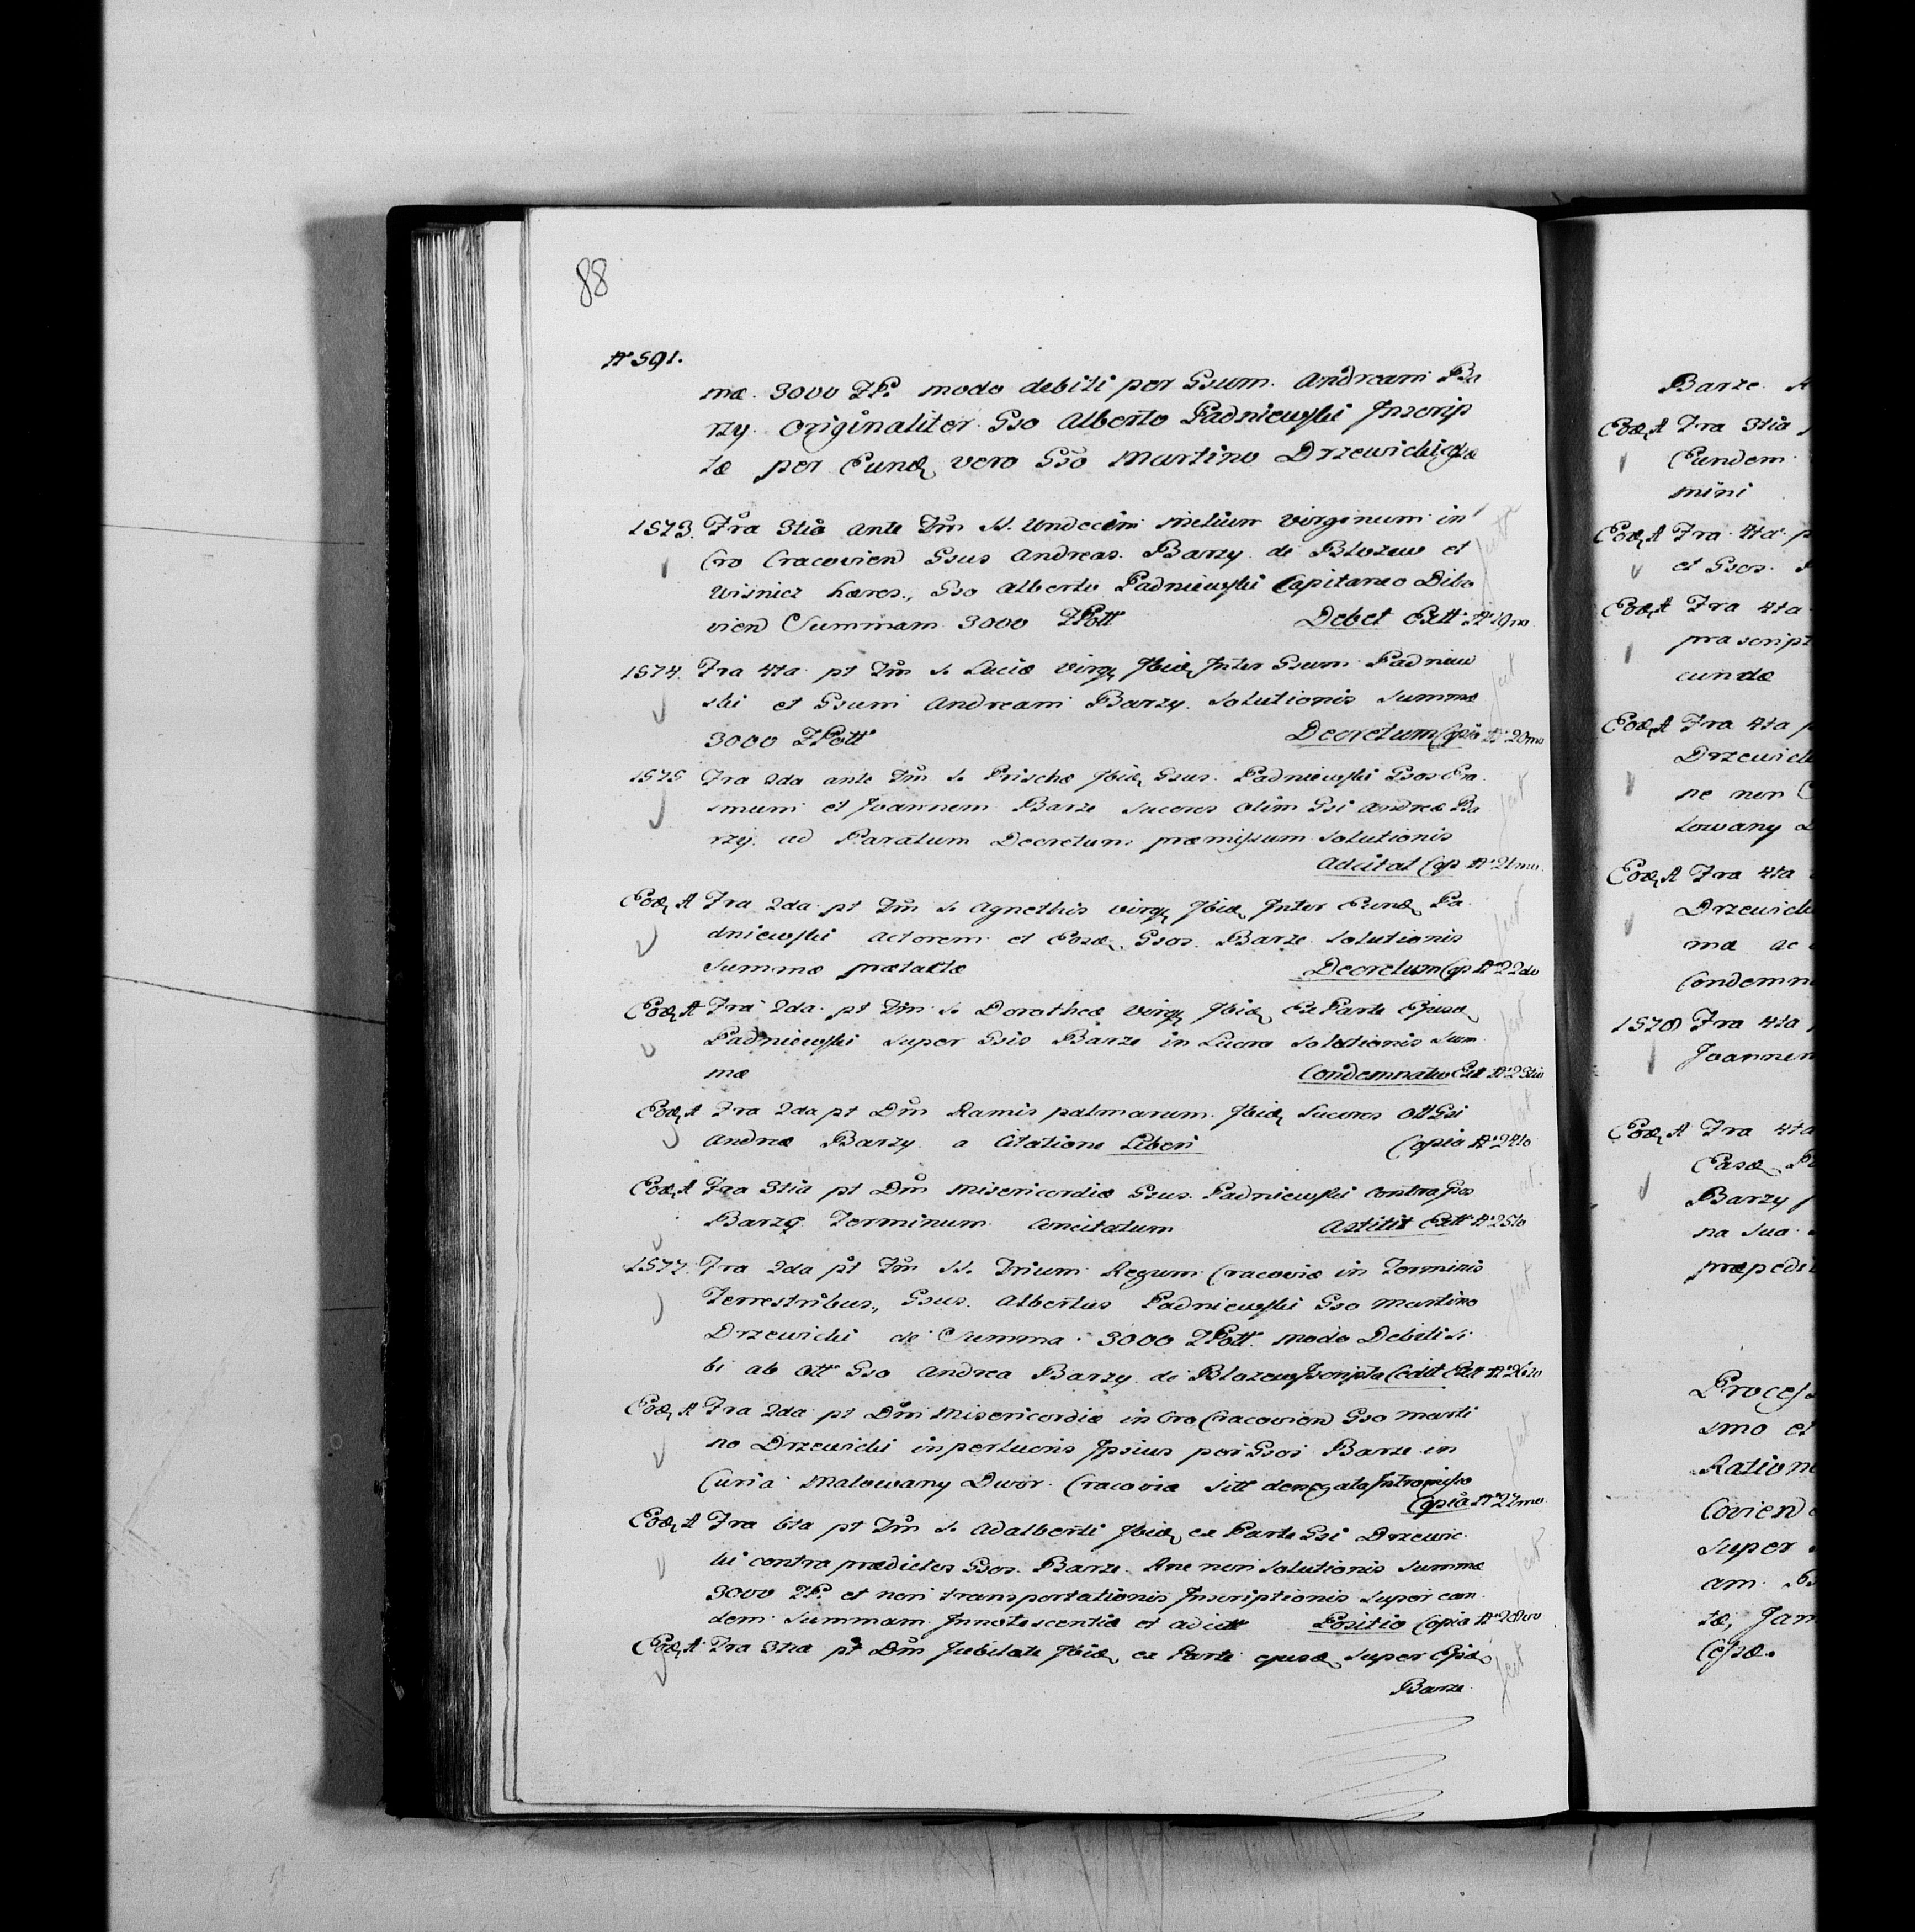 88
No 591.
mæ. 3000 ZP. modo debiti per Gsum. Andream Ba
rzy. Originaliter Gso Alberto Padniewski Inscrip
tæ per Eund vero Gso Martino Drzewicki
1573. Fra 3tia ante Fm SS. Undecim milium Virginum in
Cro Cracovien Gsus Andreas. Barzy de Blozew et
Wisnicz hæres., Gso Alberto Padniewski Capitaneo Dibo
vien Summam 3000 ZPoll Debet Extt No 19no
1574. Fra 4ta pt Fm S. Luciæ Virg Ibid Inter Gsum Padniew
ski et Gsum Andream Barzy. Solutionis Summæ
3000 ZPoll Decretum Copia No 20mo
1575 Fra 2da ante Fm S. Priscæ Ibid Gsus. Padniewski Gsos Era
smum et Joannem Barze Succres olim Gsi Andreæ Ba
rzy. ad Paratum Decretum præmissum Solutionis
Adcitat Cop No 21mo.
Eod A Fra 2da pt Fm S. Agnethis Virg Ibid Inter Eund Pa
dniewski Actorem et Eosd Gsos. Barze Solutionis
Summæ prætactæ Decretum Cop No 22do
Eod A Fra 2da pt Fm S. Dorotheæ Virg Ibid Ex Parte Ejusd
Padniewski super Gsis Barze in Lucro Solutionis Sum
mæ Condemnatio Extt No 23tio
Eod A Fra 2da pt Dm Ramis palmarum. Ibid Succres Oll Gsi
Andreæ Barzy a Citatione Liberi Copia No 24to
Eod A Fra 3tia pt Dm Misericordiæ Gsus. Padniewski contra Gsos
Barze Terminum Concitatum Astitit Extt No 25to
1577. Fra 2da pt Fm SS. Trium Regum Cracoviæ in Terminis
Terrestribus., Gsus. Albertus Padniewski Gso Martino
Drzewicki de Summa 3000 ZPoll. modo Debiti si
bi ab Oll Gso Andrea Barzy de Blozew Inscripta Cedit Extt No 26to
Eod A Fra 2da pt Dm Misericordiæ in Cro Cracovien Gso Marti
no Drzewicki in perlucris Ipsius per Gsos Barze in
Curia Malowany Dwor Cracoviæ Sitt denegata Intromissio
Copia No 27mo.
Eod A Fra 6ta pt Fm S. Adalberti Ibid ex Parte Gsi Drzewic
ki contra prædictos Gsos. Barze. Rne non Solutionis Summæ
3000 ZP. et non transportationis Inscriptionis Super ean
dem Summam Innotescentiæ et adcitt Positio Copia No 28vo
Eod A Fra 3tia pt Dm Jubilate Ibid ex Parte ejusd super
Barze
Barze
Eod A Fra 3tia
Eundem
mini
Eod A Fra 4ta
et Gsos.
Eod A Fra 4ta
præscript
cundæ
Eod A Fra 4ta
Drzewick
ne non
lowany
Eod A Fra 4ta
Drzewick
mæ ac
Condemn
1578 Fra 4ta
Joannem
Eod A Fra 4ta
Barzy
na sua
præpedit
Process
smo et
Ratione
Covien
super
am
tæ, Jam
Cessæ.